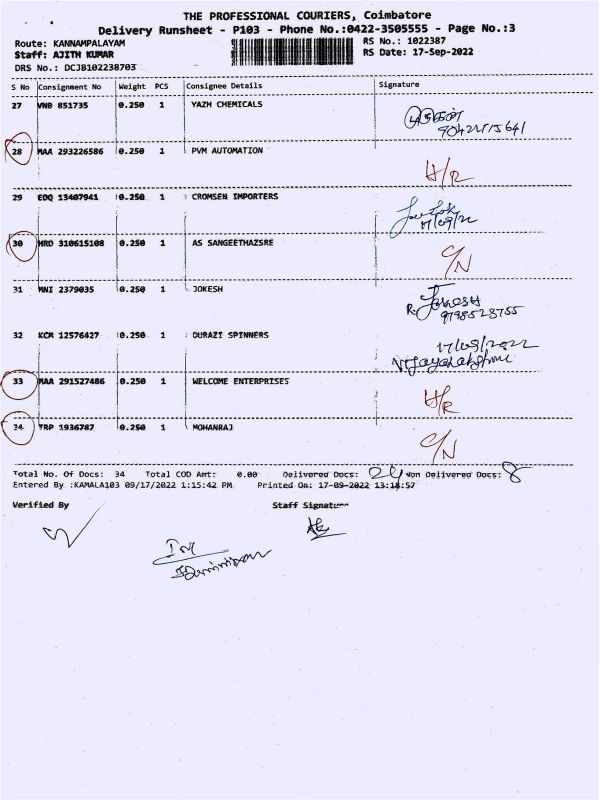 THE PROFESSIONAL COURIERS, Coimbatore
Delivery Runsheet - P103 - Phone No.:0422-3505555 - Page No.:3
Route: KANNAMPALAYAM RS No.: 1022387
Staff: AJITH KUMAR RS Date: 17-Sep-2022
DRS No.: DCJB102238703
S No Consignment No Weight PCS Consignee Details Signature
27 VNB 851735 0.250 1 YAZH CHEMICALS
28 MAA 293226586 0.250 1 PVM AUTOMATION H/R
29 EDQ 13407941 0.250 1 CROMSEN IMPORTERS
17/09/22
30 HRD 310615108 0.250 1 AS SANGEETHAZSRE C/N
31 MNI 2379035 0.250 1 JOKESH R. Jokesh
32 KCM 12576427 0.250 1 OURAZI SPINNERS 17/09/2022
Vijayalakshmi
33 MAA 291527486 0.250 1 WELCOME ENTERPRISES H/R
34 TRP 1936787 0.250 1 MOHANRAJ C/N
Total No. Of Docs: 34 Total COD Amt: 0.00 Delivered Docs: Non Delivered Docs: 8
Entered By :KAMALA103 09/17/2022 1:15:42 PM Printed On: 17-09-2022 13:18:57
Verified By Staff Signature